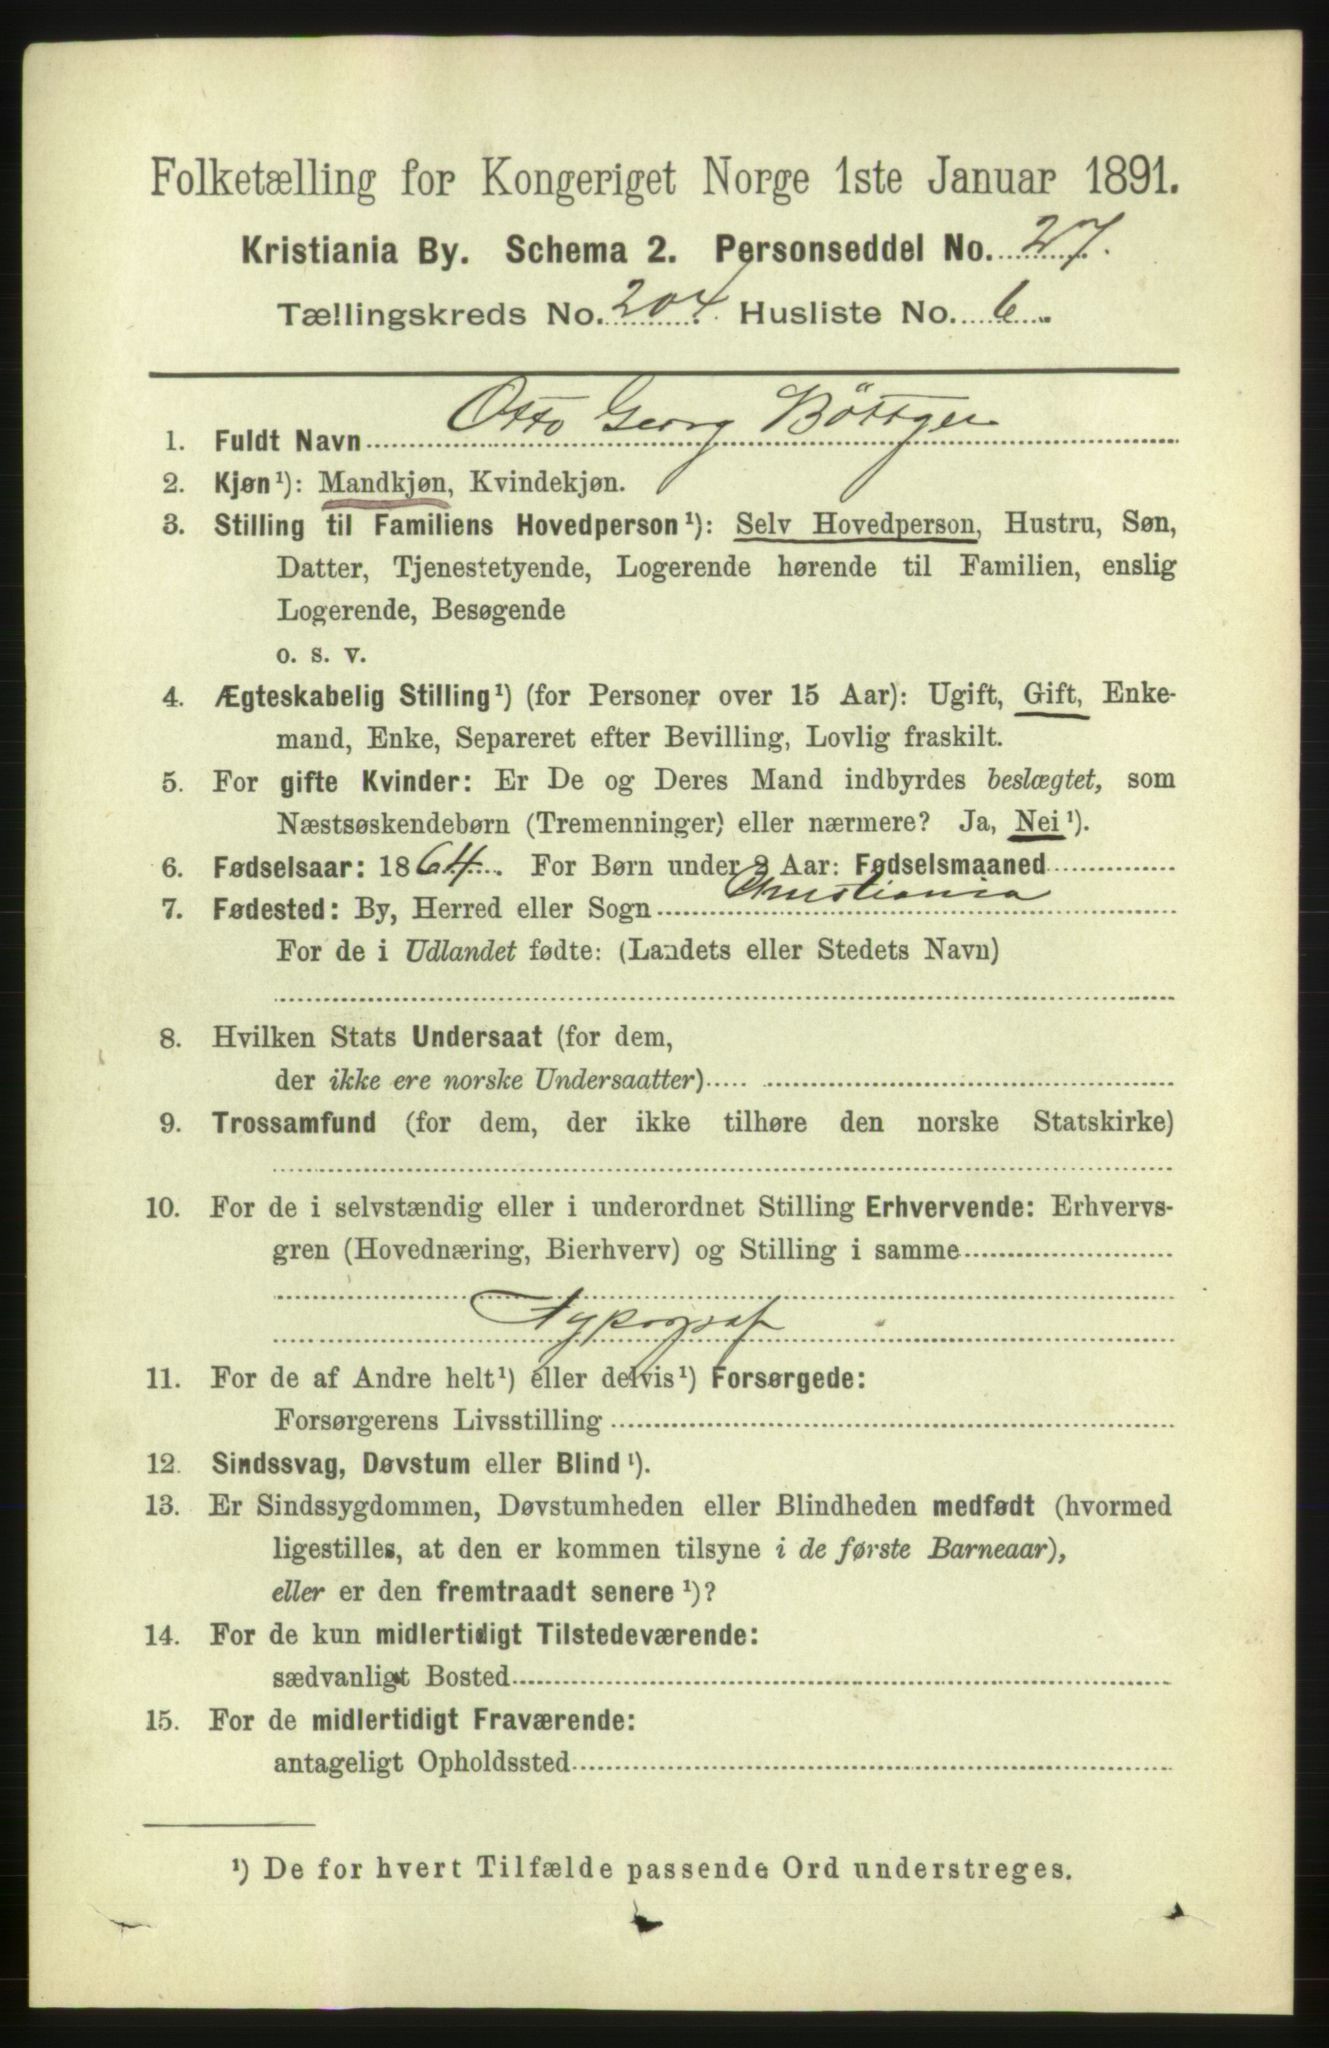 Folketælling for Kongeriget Norge 1ste Januar 1891.
Kristiania By. Schema 2. Personseddel No. 27.
Tællingskreds No. 204. Husliste No. 6.
1. Fuldt Navn Otto Georg Böttger
2. Kjøn¹): Mandkjøn, Kvindekjøn.
3. Stilling til Familiens Hovedperson¹): Selv Hovedperson, Hustru, Søn,
Datter, Tjenestetyende, Logerende hørende til Familien, enslig
Logerende, Besøgende
o. s. v.
4. Ægteskabelig Stilling¹) (for Personer over 15 Aar): Ugift, Gift, Enke-
mand, Enke, Separeret efter Bevilling, Lovlig fraskilt.
5. For gifte Kvinder: Er De og Deres Mand indbyrdes beslægtet, som
Næstsøskendebørn (Tremenninger) eller nærmere? Ja, Nei¹).
6. Fødselsaar: 1864. For Børn under 2 Aar: Fødselsmaaned
7. Fødested: By, Herred eller Sogn Christiania
For de i Udlandet fødte: (Landets eller Stedets Navn)
8. Hvilken Stats Undersaat (for dem,
der ikke ere norske Undersaatter)
9. Trossamfund (for dem, der ikke tilhøre den norske Statskirke)
10. For de i selvstændig eller i underordnet Stilling Erhvervende: Erhvervs-
gren (Hovednæring, Bierhverv) og Stilling i samme
Typograf
11. For de af Andre helt¹) eller delvis¹) Forsørgede:
Forsørgerens Livsstilling
12. Sindssvag, Døvstum eller Blind¹).
13. Er Sindssygdommen, Døvstumheden eller Blindheden medfødt (hvormed
ligestilles, at den er kommen tilsyne i de første Barneaar),
eller er den fremtraadt senere¹)?
14. For de kun midlertidigt Tilstedeværende:
sædvanligt Bosted
15. For de midlertidigt Fraværende:
antageligt Opholdssted
¹) De for hvert Tilfælde passende Ord understreges.